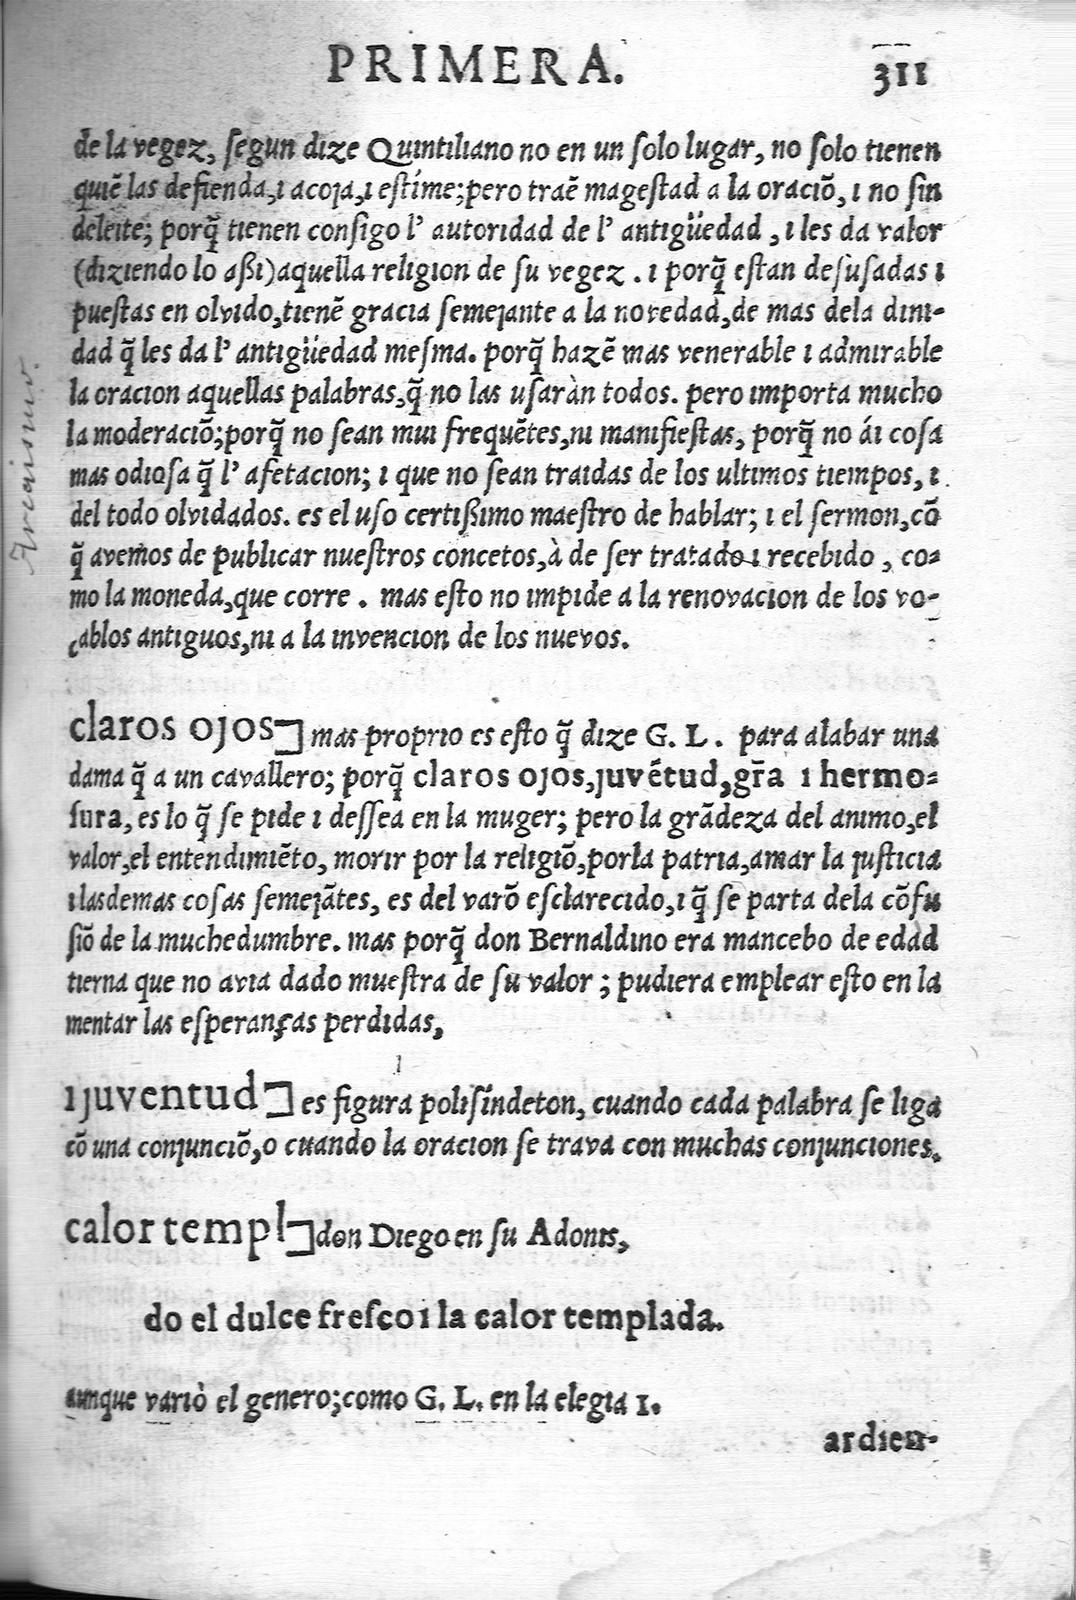 PRIMERA. 311
de la vegez, ſegun dize Quintiliano no en un ſolo lugar, no ſolo tienen
quiẽ las defienda,ı acoȷa,ı eſtíme;pero traẽ mageſtad a la oraciõ, ı no ſin
deleite; porq̃ tienen conſigo l’ autoridad de l’ antigüedad , ı les da valor
(diziendo lo aßi)aquella religion de ſu vegez . ı porq̃ eſtan deſuſadas ı
pueſtas en olvido,tienẽ gracia ſemeȷante a la novedad,de mas dela dini-
dad q̃ les da l’ antigüedad meſma. porq̃ hazẽ mas venerable ı admirable
la oracion aquellas palabras,q̃ no las uſaràn todos. pero importa mucho
la moderaciõ;porq̃ no ſean mui frequẽtes,ni manifieſtas, porq̃ no áı coſa
mas odioſa q̃ l’ afetacion; ı que no ſean traidas de los ultimos tiempos, ı
del todo olvidados. es el uſo certißimo maeſtro de hablar; ı el ſermon,cõ
q̃ avemos de publicar nueſtros concetos,à de ſer tratado ı recebido , co-
mo la moneda,que corre . mas eſto no impide a la renovacion de los vo-
cablos antiguos,ni a la invencion de los nuevos.
claros oȷos] mas proprio es eſto q̃ dize G. L. para alabar una
dama q̃ a un cavallero; porq̃ claros oȷos,ȷuvẽtud,gr̃a ı hermo-
ſura, es lo q̃ ſe pide ı deſſea en la muger; pero la grãdeza del animo,el
valor,el entendimiẽto, morir por la religiõ,porla patria,amar la ȷuſticia
ı lasdemas coſas ſemeȷãtes, es del varõ eſclarecido,ı q̃ ſe parta dela cõfu
ſiõ de la muchedumbre. mas porq̃ don Bernaldino era mancebo de edad
tierna que no avia dado mueſtra de ſu valor ; pudiera emplear eſto en la
mentar las eſperanças perdidas,
ı ȷuventud] es figura poliſíndeton, cuando cada palabra ſe liga
cõ una conȷunciõ,o cuando la oracion ſe trava con muchas conȷunciones.
calor templ] don Diego en ſu Adonis,
do el dulce freſco ı la calor templada.
aunque variò el genero;como G. L. en la elegia 1.
ardien-